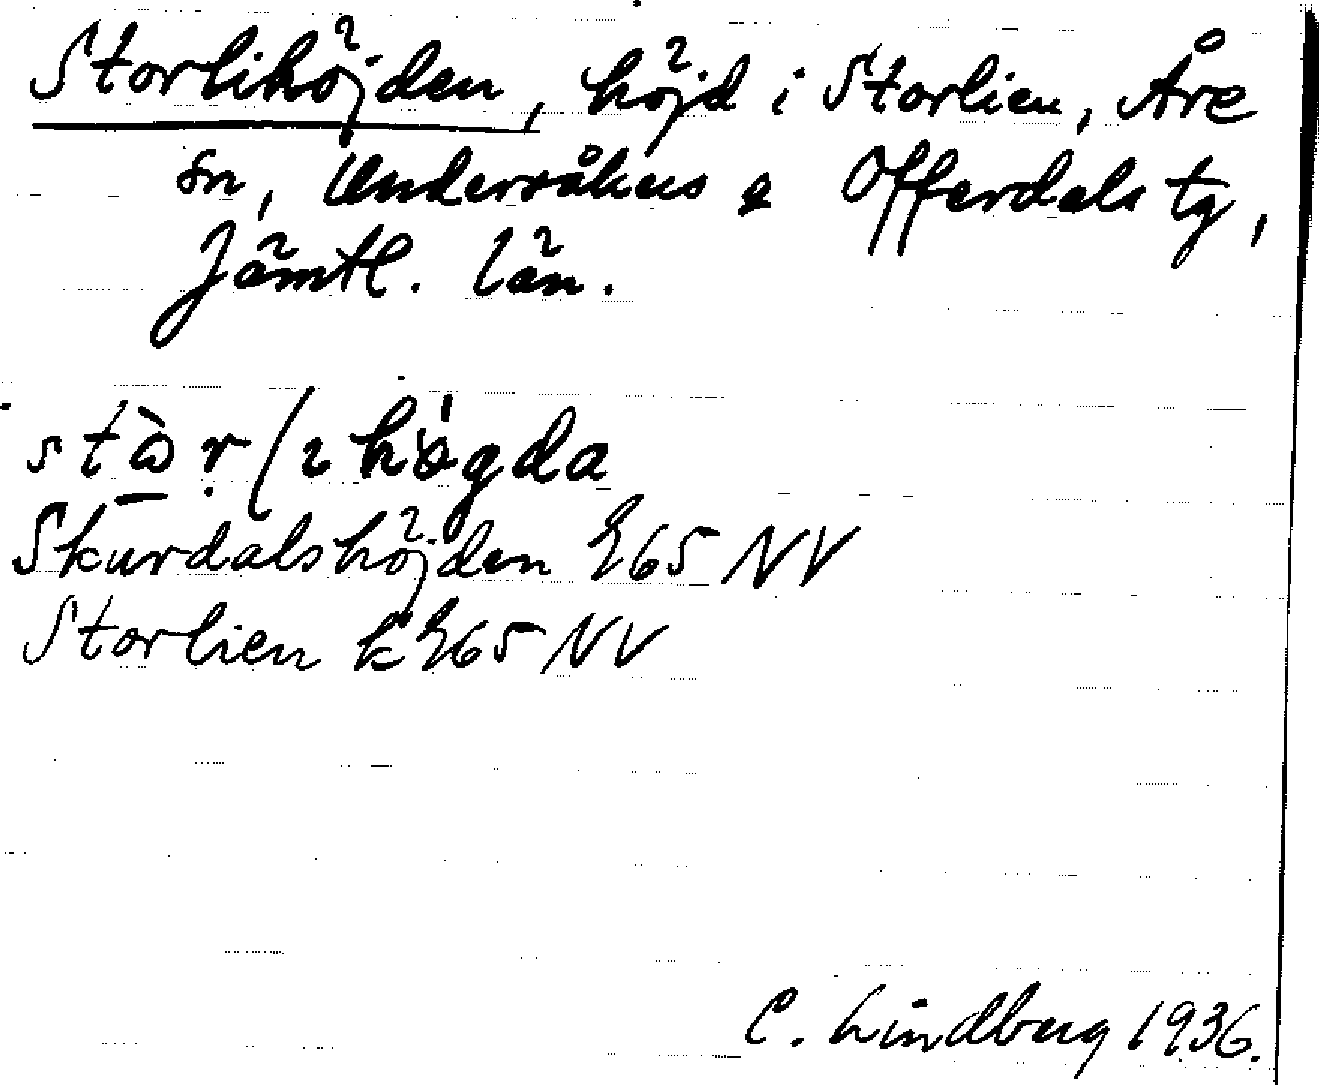 Storlihöjden, höjd i Storlien, Åre
sn, Undersåkers & Offerdals tg,
Jämtl. län.
Skurdalshöjden 365 NV
Storlien k 365 NV
C. Lindberg 1936.